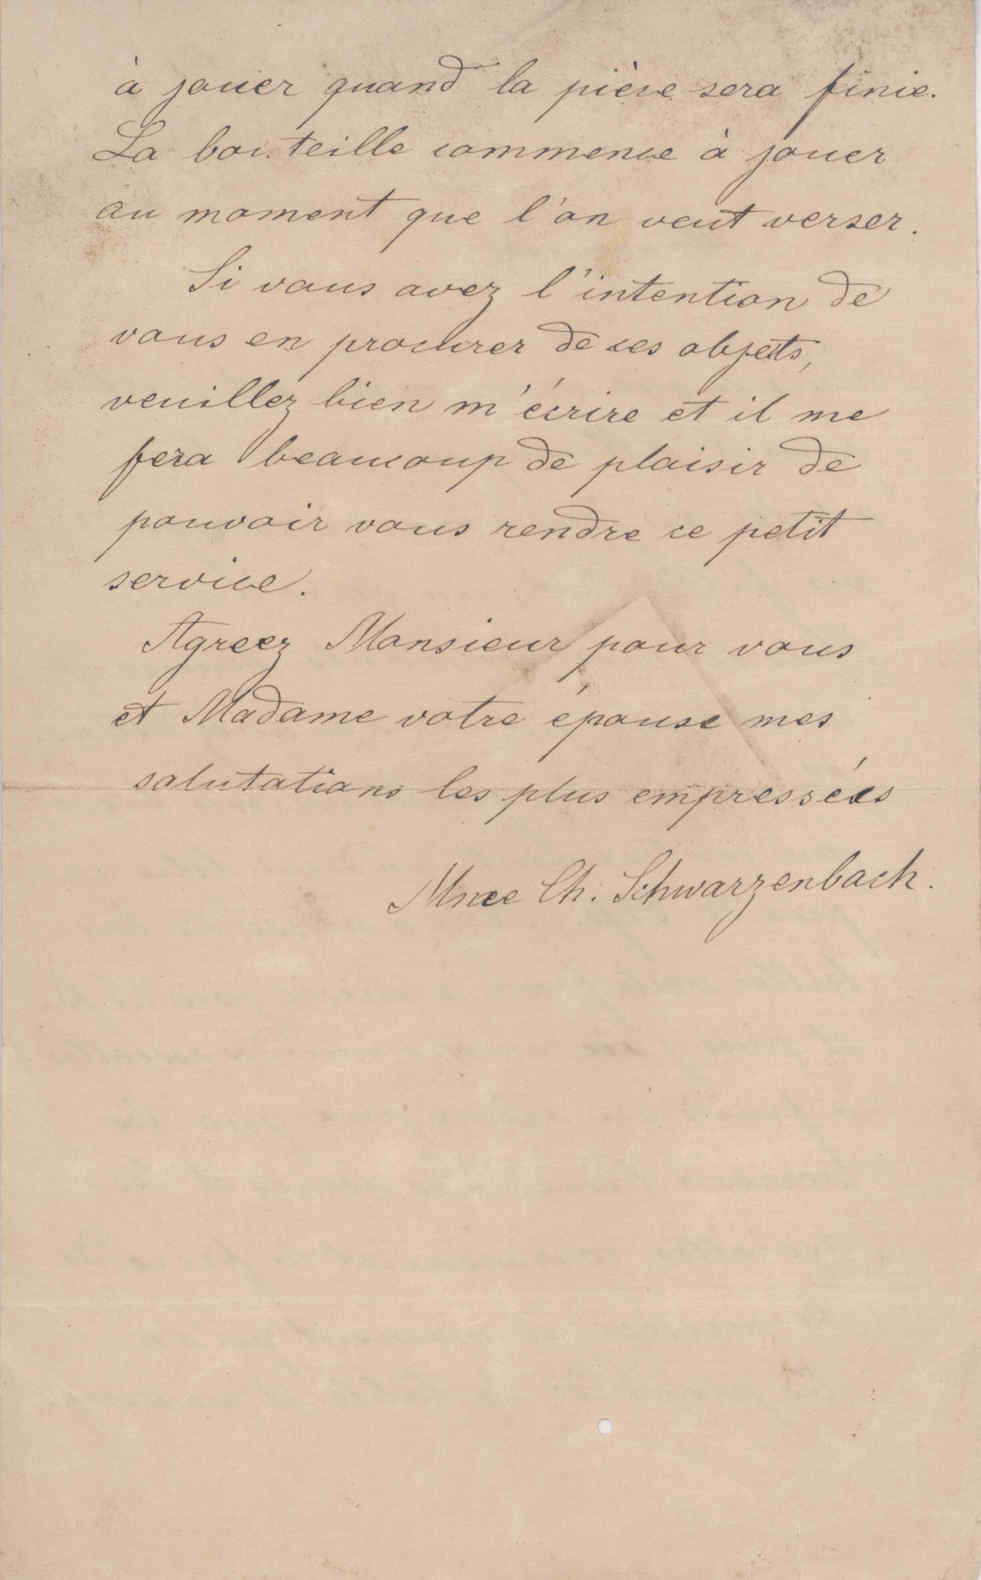 à jouer quand la pièce sera finie.
La bouteille commence à jouer
au moment que l'on veut verser.
Si vous avez l'intention de
vous en procurer de ces objets,
veuillez bien m'écrire et il me
fera beaucoup de plaisir de
pouvoir vous rendre ce petit
service.
Agreez Monsieur pour vous
et Madame votre épouse mes
salutations les plus empressées
Mme Ch. Schwarzenbach.